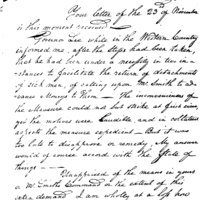 Your letter of the 23d of November
is this moment received —
Povino and while in the Western Country
informed me, after the steps had been taken,
that he had been under a necessity in two in-
stances to facilitate the return of detachments
of sick men, of calling upon Mr. Smith to ad-
vance Money to them — The inconvenience of
the Measure could not but strike at first view
yet the motives were laudable and in
aspects the measure expedient — But it was
too late to disapprove or remedy, My answer
would of course accord with the State of
things —
Unapprised of the means in your
or Mr Smiths Command or the extent of the
demand I am wholly at a loss how